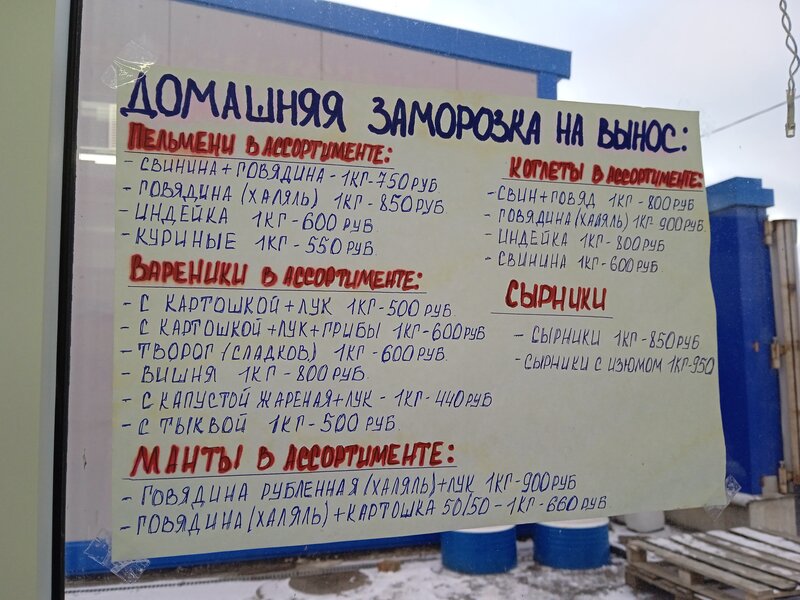 ДОМАШНЯЯ ЗАМОРОЗКА НА ВЫНОС:
ПЕЛЬМЕНИ В АССОРТИМЕНТЕ:
- СВИНИНА + ГОВЯДИНА - 1КГ-750 РУБ
- ГОВЯДИНА (ХАЛЯЛЬ) 1КГ - 850 РУБ
- ИНДЕЙКА 1КГ - 600 РУБ.
- КУРИНЫЕ 1КГ - 550 РУБ.
ВАРЕНИКИ В АССОРТИМЕНТЕ:
- С КАРТОШКОЙ + ЛУК 1КГ - 500 РУБ
- С КАРТОШКОЙ + ЛУК + ГРИБЫ 1КГ - 600 РУБ
- ТВОРОГ (СЛАДКОВ) 1КГ - 600 РУБ.
- ВИШНЯ 1КГ - 800 РУБ.
- С КАПУСТОЙ ЖАРЕНАЯ + ЛУК - 1КГ - 440 РУБ
- С ТЫКВОЙ 1КГ - 500 РУБ.
МАНТЫ В АССОРТИМЕНТЕ:
- ГОВЯДИНА РУБЛЕННАЯ (ХАЛЯЛЬ) + ЛУК 1КГ - 900 РУБ
- ГОВЯДИНА (ХАЛЯЛЬ) + КАРТОШКА 50/50 - 1КГ - 660 РУБ.
КОТЛЕТЫ В АССОРТИМЕНТЕ:
- СВИН + ГОВЯД 1КГ - 800 РУБ
- ГОВЯДИНА (ХАЛЯЛЬ) 1КГ 900 РУБ.
- ИНДЕЙКА 1КГ - 800 РУБ
- СВИНИНА 1КГ - 600 РУБ.
СЫРНИКИ
- СЫРНИКИ 1КГ - 850 РУБ
- СЫРНИКИ С ИЗЮМОМ 1КГ - 950